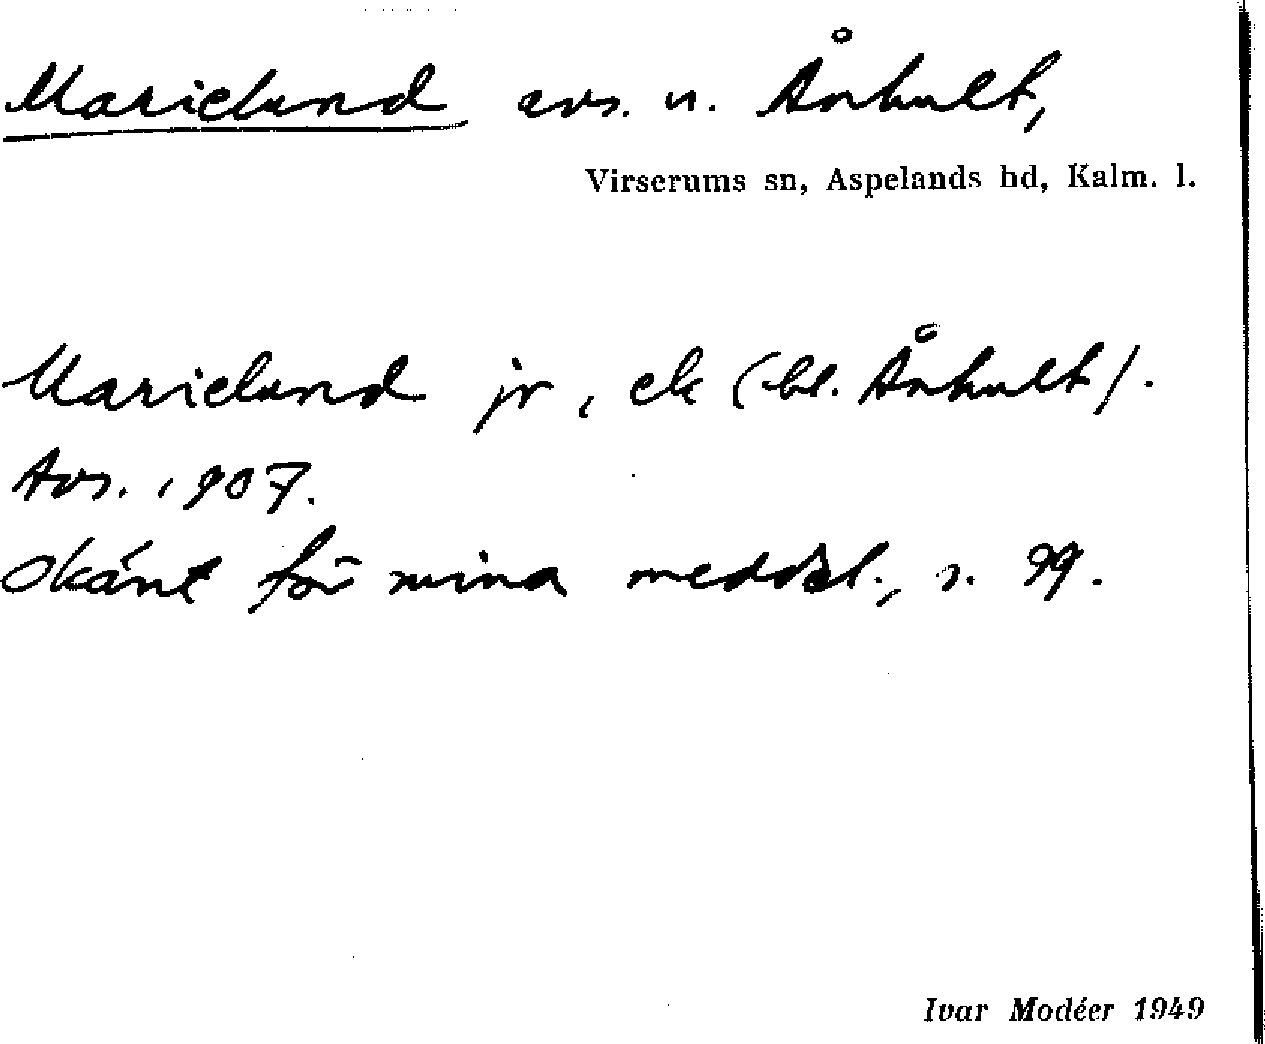 Marielund avs. u. Ånhult,
Virserums sn, Aspelands hd, Kalm. l.
Marielund jr, ek (bl. Ånhult).
Avs. 1907.
Okänt för mina meddel., s. 99.
Ivar Modéer 1949